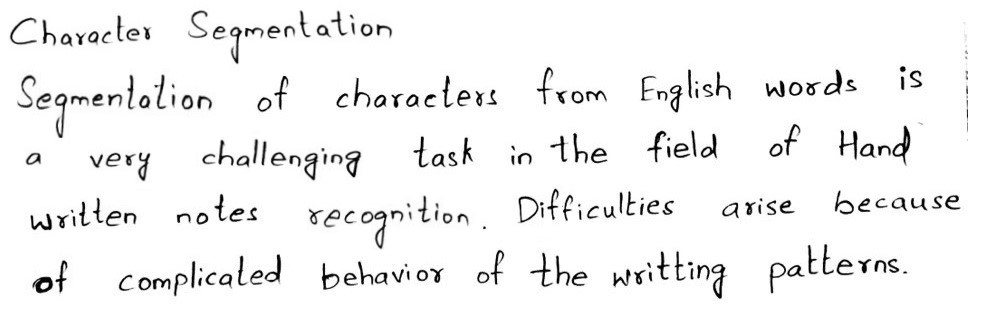 Character Segmentation
Segmentation of characters from English words is
a very challenging task in the field of Hand
written notes recognition. Difficulties arise because
of complicated behavior of the writting patterns.